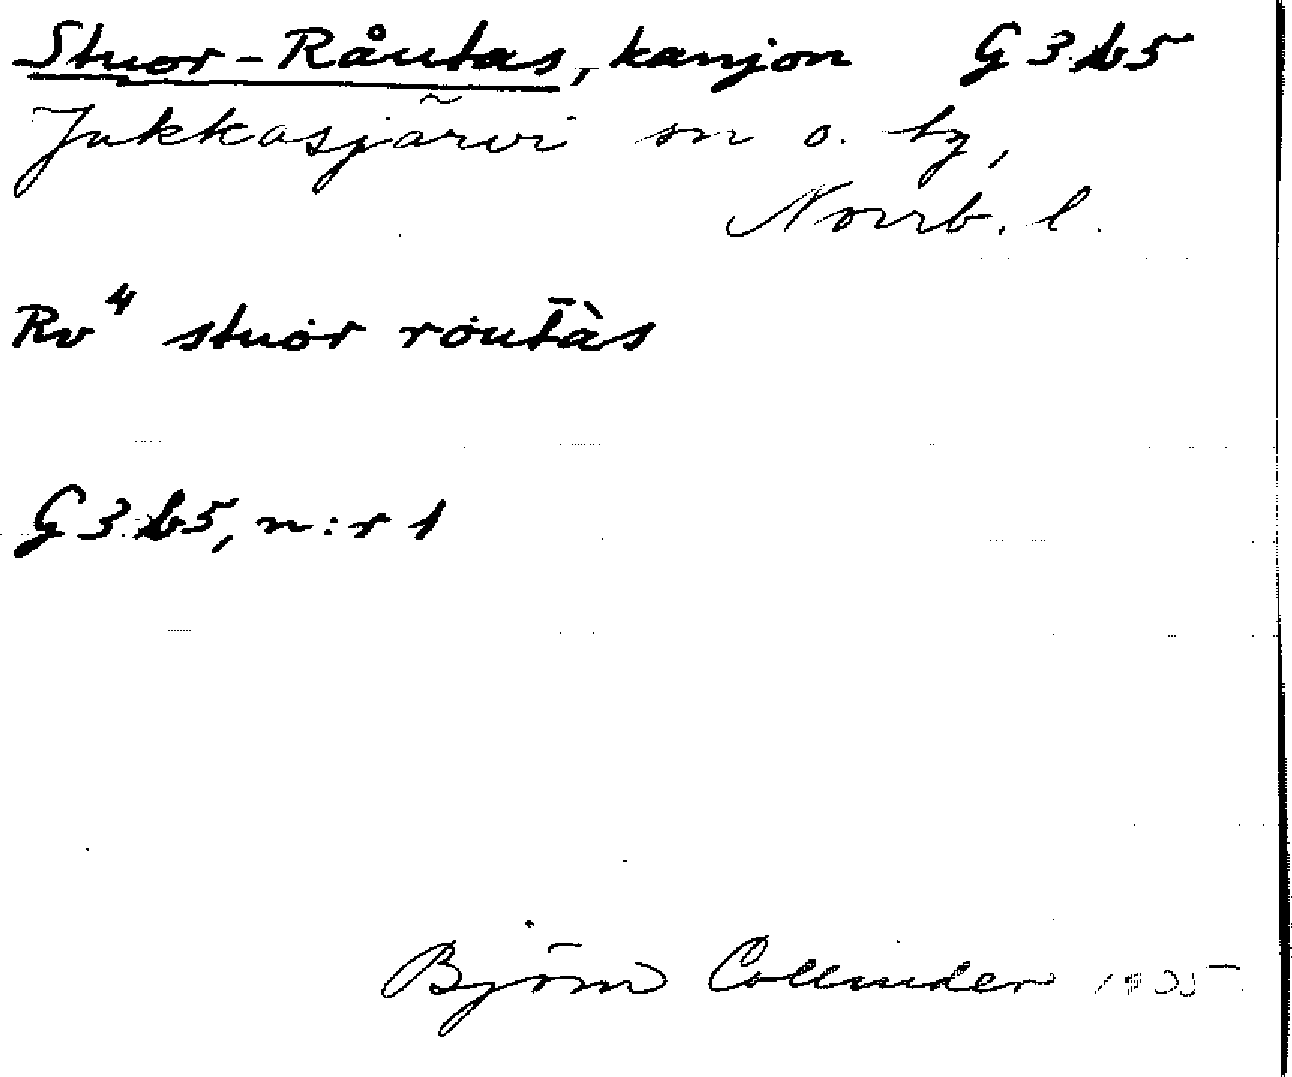 Stuor-Råutas, kanjon G3b5
Jukkasjärvi sn o. by,
Norrb. l.
Rv⁴ stuȯr rȯut̄às
G3b5, n:r 1
Björn Collinder 1935